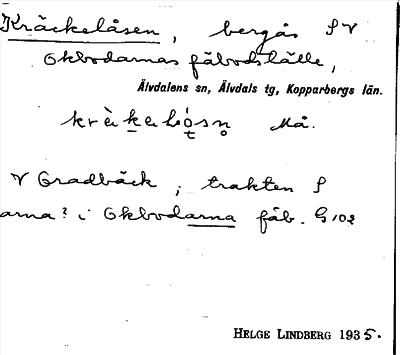 Kräckelåsen, bergås S V
Okbodarnas fäbodställe,
Älvdalens sn, Älvdals tg, Kopparbergs län.
Må.
V Gradbäck, trakten S
arna? i Okbodarna fäb. G 102
HELGE LINDBERG 1935.